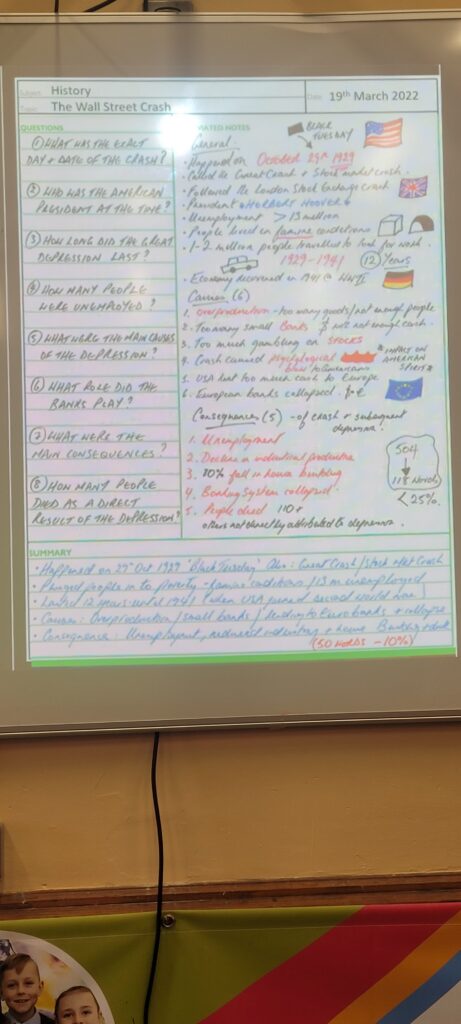 Subject: History
Date: 19th March 2022
Topic: The Wall Street Crash
QUESTIONS
① WHAT WAS THE EXACT
DAY + DATE OF THE CRASH?
② WHO WAS THE AMERICAN
PRESIDENT AT THE TIME?
③ HOW LONG DID THE GREAT
DEPRESSION LAST?
④ HOW MANY PEOPLE
WERE UNEMPLOYED?
⑤ WHAT WERE THE MAIN CAUSES
OF THE DEPRESSION?
⑥ WHAT ROLE DID THE
BANKS PLAY?
⑦ WHAT WERE THE
MAIN CONSEQUENCES?
⑧ HOW MANY PEOPLE
DIED AS A DIRECT
RESULT OF THE DEPRESSION?
NOTES
BLACK
TUESDAY
General
• Happened on October 29th 1929
• Called the Great Crash + Stock market crash.
• Followed the London Stock Exchange Crash
• President HERBERT HOOVER
• Unemployment > 13 million
• People lived in famine conditions
• 1-2 million people travelled to look for work.
1929-1941 12 Years
• Economy recovered in 1941 @ WWII
Causes (6)
1. Overproduction - too many goods/not enough people
2. Too many small Banks & not enough cash.
3. Too much gambling on STOCKS
4. Crash caused blow to Americans
IMPACT ON
AMERICAN
SPIRIT
5. USA lent too much cash to Europe
6. European banks collapsed.
Consequences (5) - of crash & subsequent
depression.
1. Unemployment
2. Decline in industrial production
3. 80% fall in house building
4. Banking System collapsed.
5. People died 110+
others not directly attributed to depression.
504
118 Words
< 25%
SUMMARY
• Happened on 29th Oct 1929 'Black Tuesday' Also: Great Crash/Stock Crash
• Plunged people in to poverty - famine conditions/13m unemployed
• Lasted 12 years until 1941 (when USA joined second world war)
• Causes: Overproduction/small banks/lending to Euro banks + collapse
• Consequences: Unemployment, reduced industry + house
(50 WORDS - 10%)